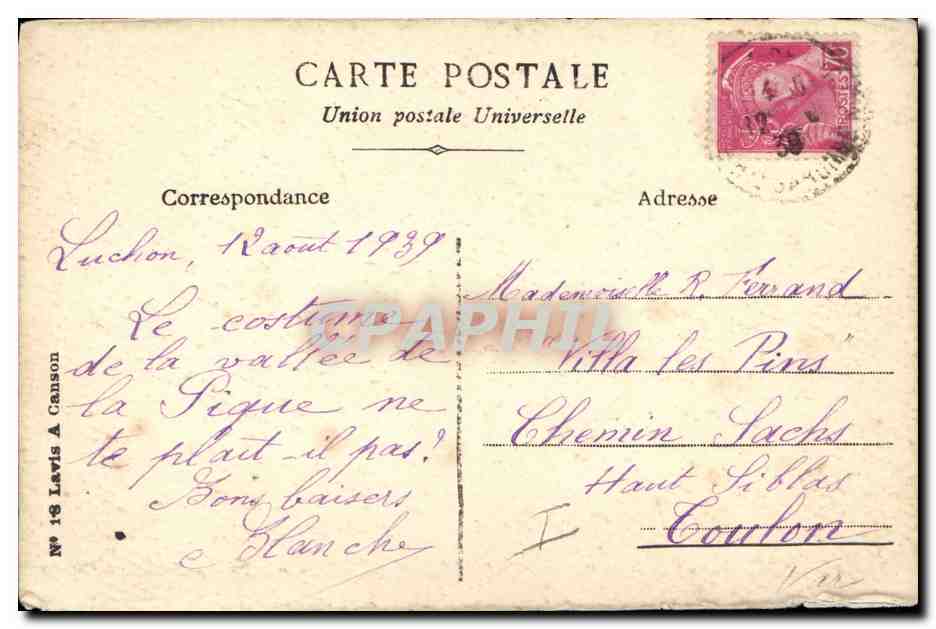 CARTE POSTALE
Union postale Universelle
Correspondance
Adresse
Luchon, 12 août 1939
Le costume
de la vallée de
la Pique ne
te plait-il pas?
Bons baisers
Blanche
Mademoiselle R. Ferrand
"Villa les Pins"
Chemin Sachs
Haut Siblas
Toulon
Var
No 18 Lavis A Canson
CPAPHIL
70
POSTES
12
39